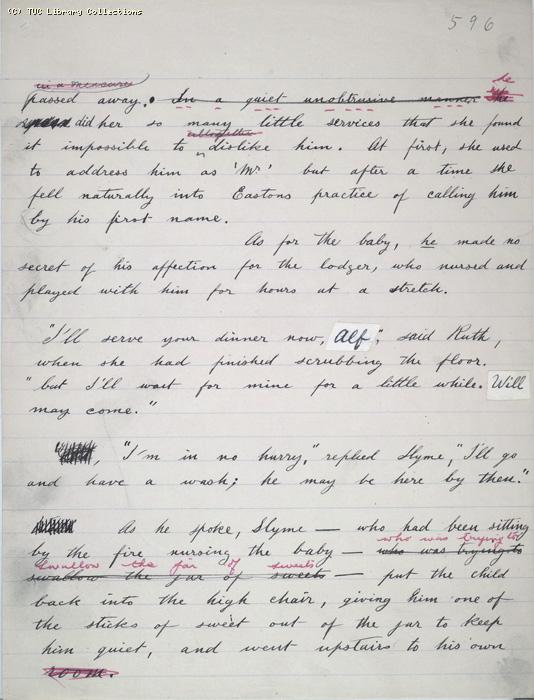 (C) TUC Library Collections
596
in a measure
passed away. In a quiet unobtrusive manner the he
did her so many little services that she found
altogether
it impossible to dislike him. At first, she used
to address him as 'Mr' but after a time she
fell naturally into Eastons practice of calling him
by his first name.
As for the baby, he made no
secret of his affection for the lodger, who nursed and
played with him for hours at a stretch.
"I'll serve your dinner now, Alf", said Ruth,
when she had finished scrubbing the floor.
"but I'll wait for mine for a little while. Will
may come."
"I'm in no hurry," replied Slyme, "I'll go
and have a wash; he may be here by then."
As he spoke, Slyme — who had been sitting
who was trying to
by the fire nursing the baby — who was trying to
swallow the jar of sweets
swallow the jar of sweets — put the child
back into the high chair, giving him one of
the sticks of sweet out of the jar to keep
him quiet, and went upstairs to his own
room.